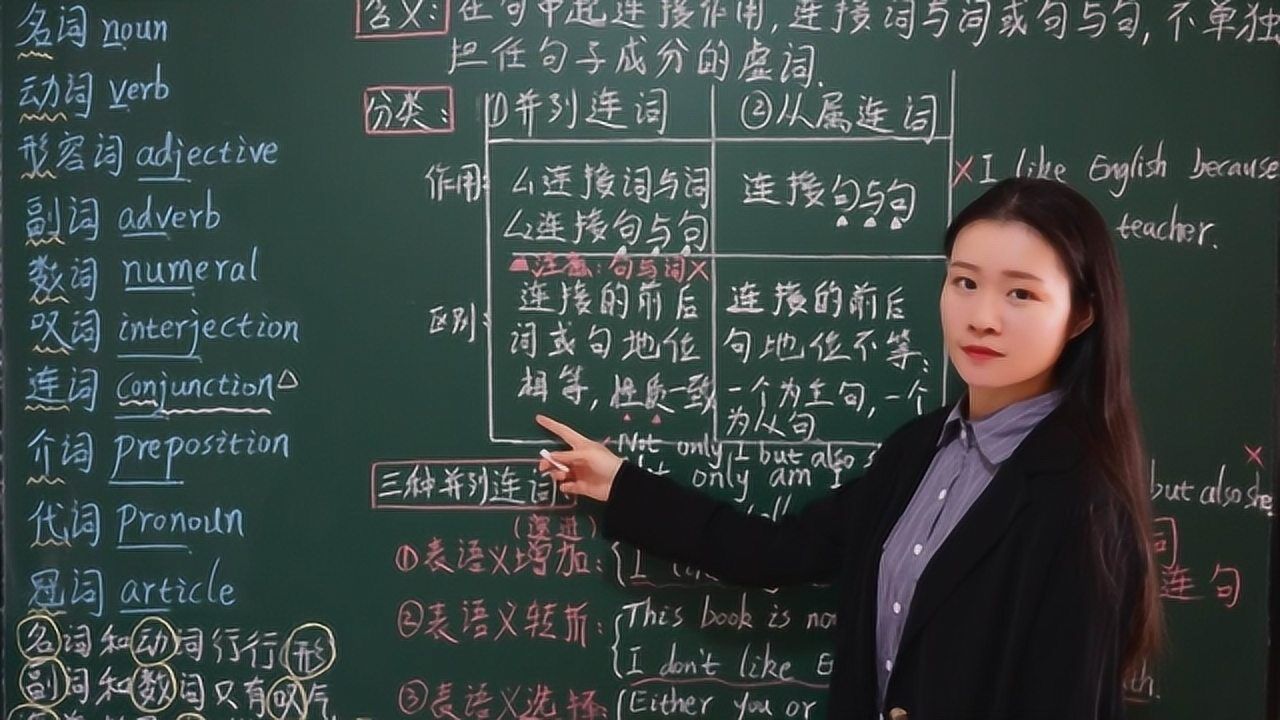 名词 noun
动词 verb
形容词 adjective
副词 adverb
数词 numeral
叹词 interjection
连词 conjunction△
介词 preposition
代词 pronoun
冠词 article
名词和动词行行形
副词和数词只有叹气
含义: 在句中起连接作用,连接词与词或句与句,不单独
担任句子成分的虚词.
分类: ①并列连词 ②从属连词
作用:
连接词与词
连接句与句
▲注意:句与词×
连接句与句
区别:
连接的前后
词或句地位
相等,性质一致
连接的前后
句地位不等;
一个为主句,一个
为从句
三种并列连词
(递进)
①表语义增加:
②表语义转折:
③表语义选择:
Not only I but also
only am I
I
This book is
I don't like
Either you or
×I like English because
teacher.
×
but also she
连句